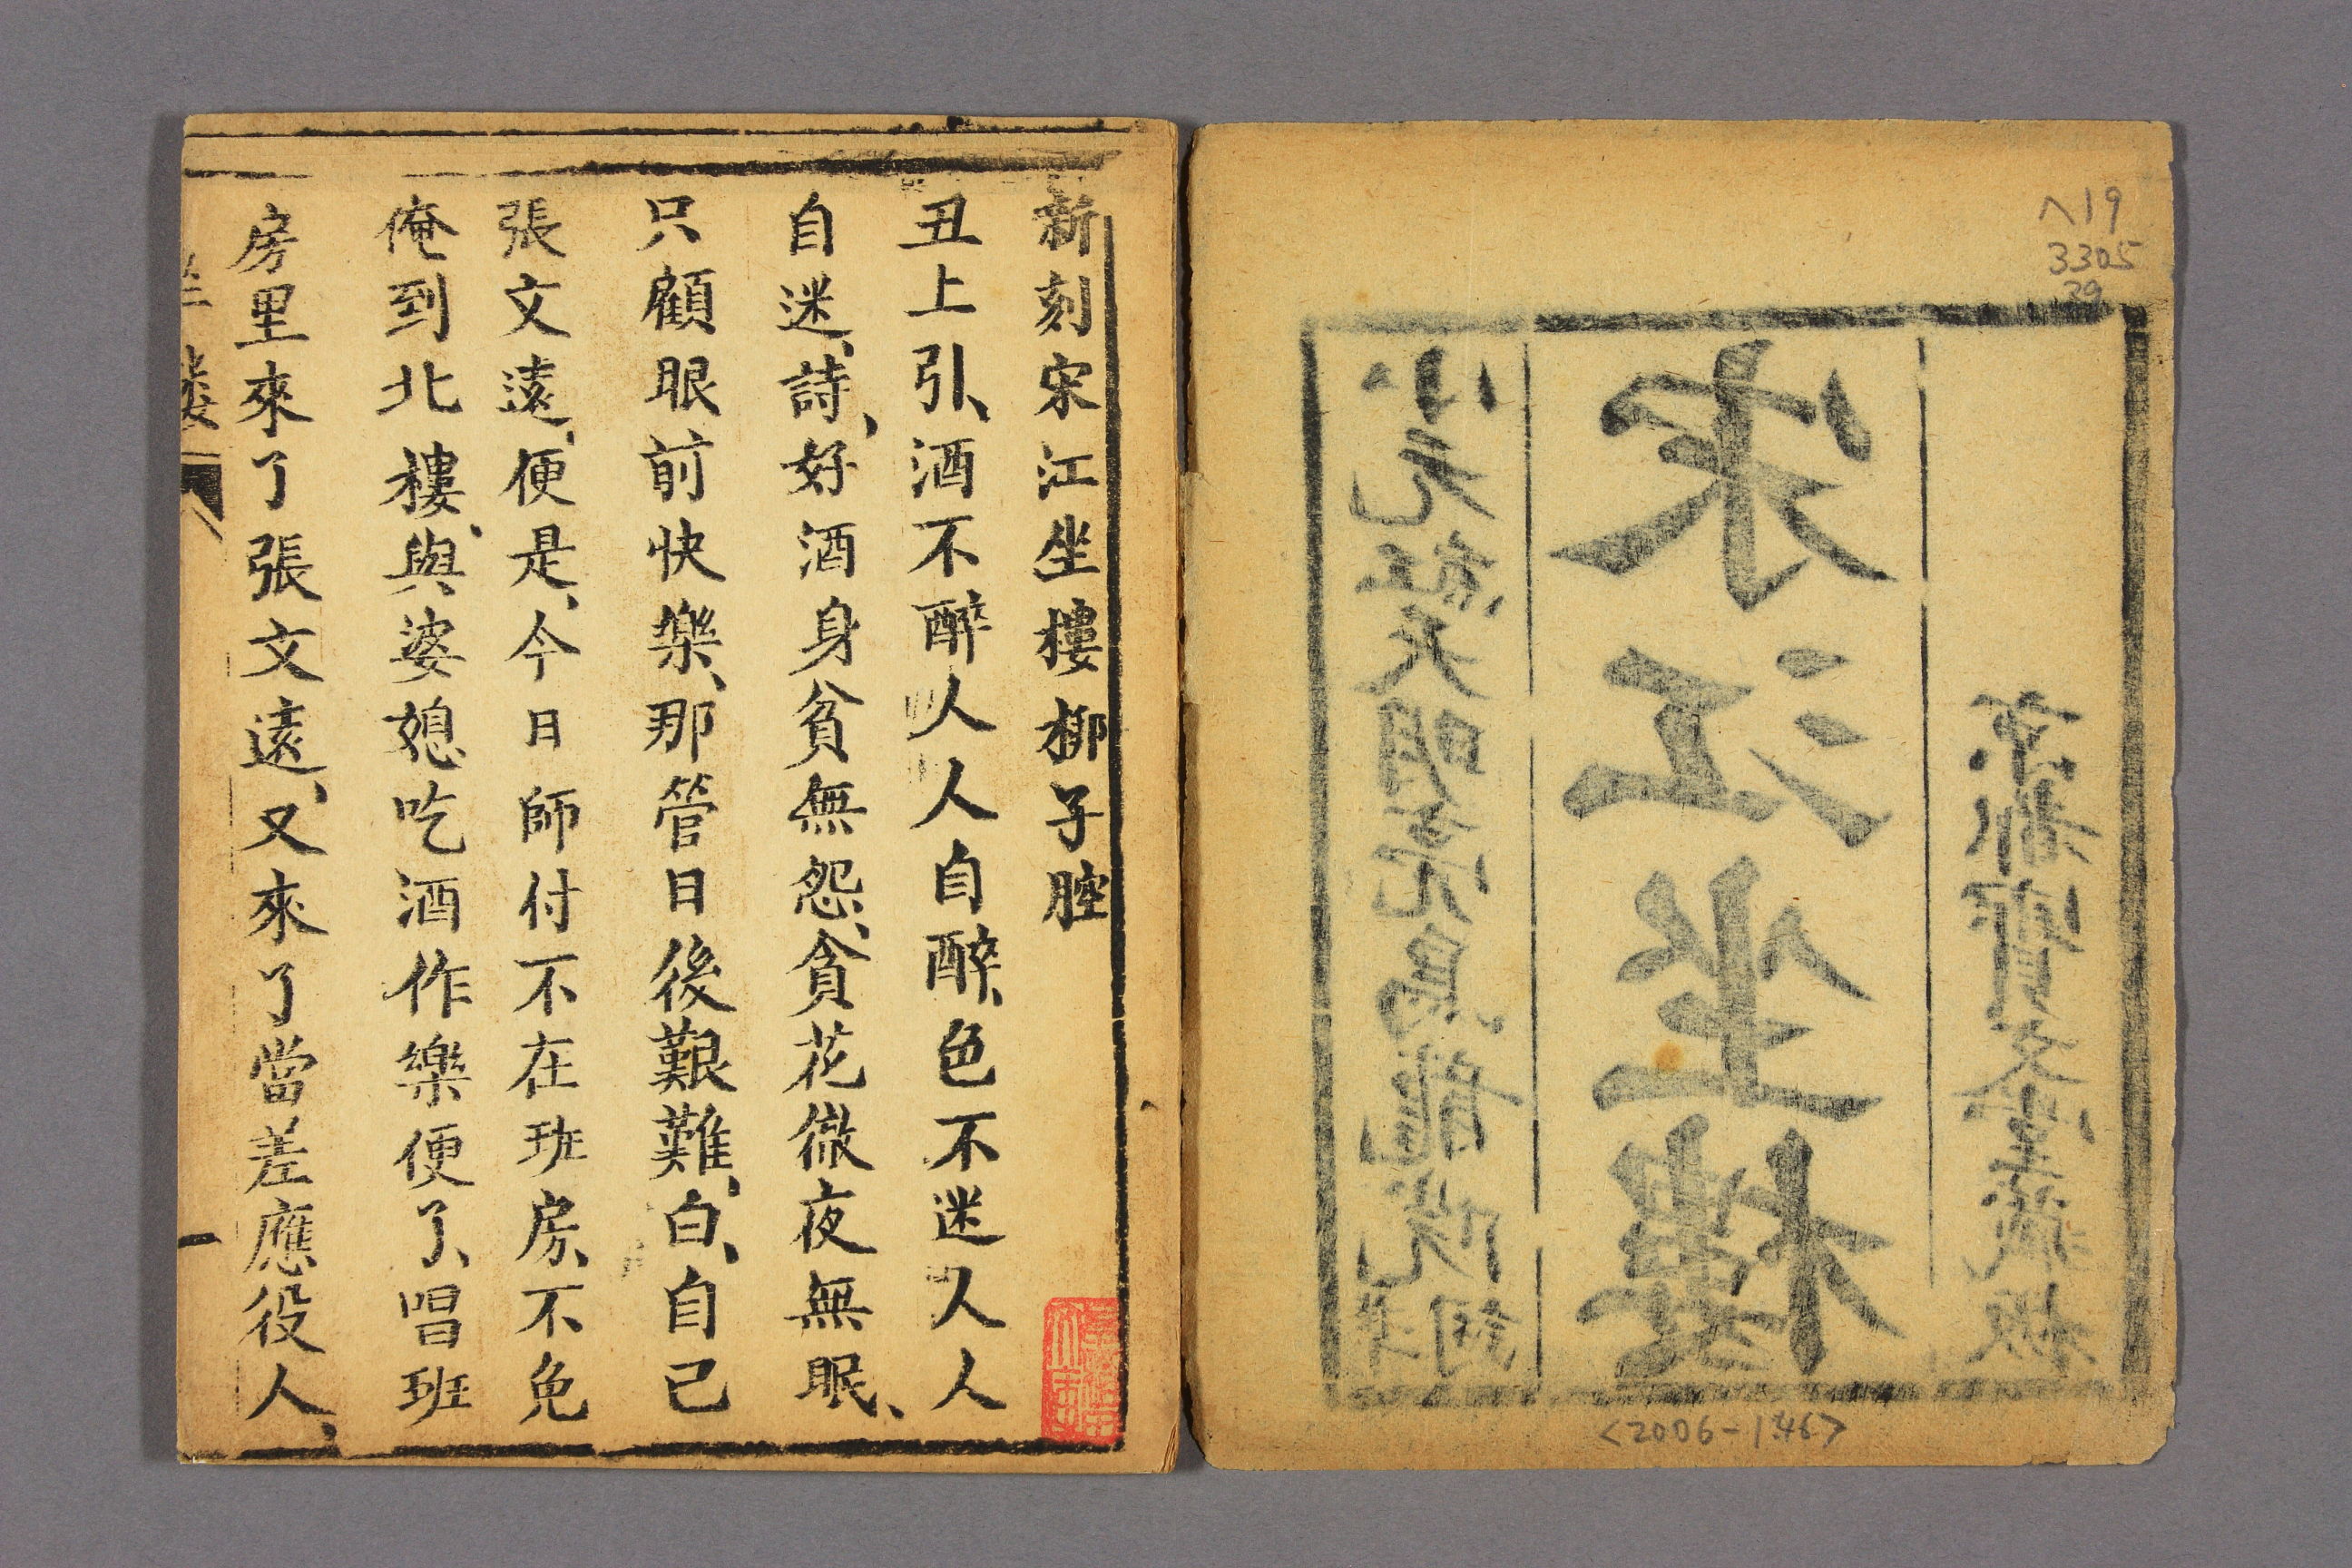 ヘ19
3305
39
京都寶文堂藏板
宋江坐樓
小老天明亮烏龍院
<2006-1346>
新刻宋江坐樓梆子腔
丑上引、酒不醉人人自醉、色不迷人人
自迷、詩、好酒身貧無怨、貪花微夜無眠、
只顧眼前快樂、那管日後艱難、白、自己
張文遠、便是、今日師付不在班房、不免
俺到北樓、與婆媳吃酒作樂便了、唱班
房里來了張文遠、又來了當差應役人、
坐楼
一